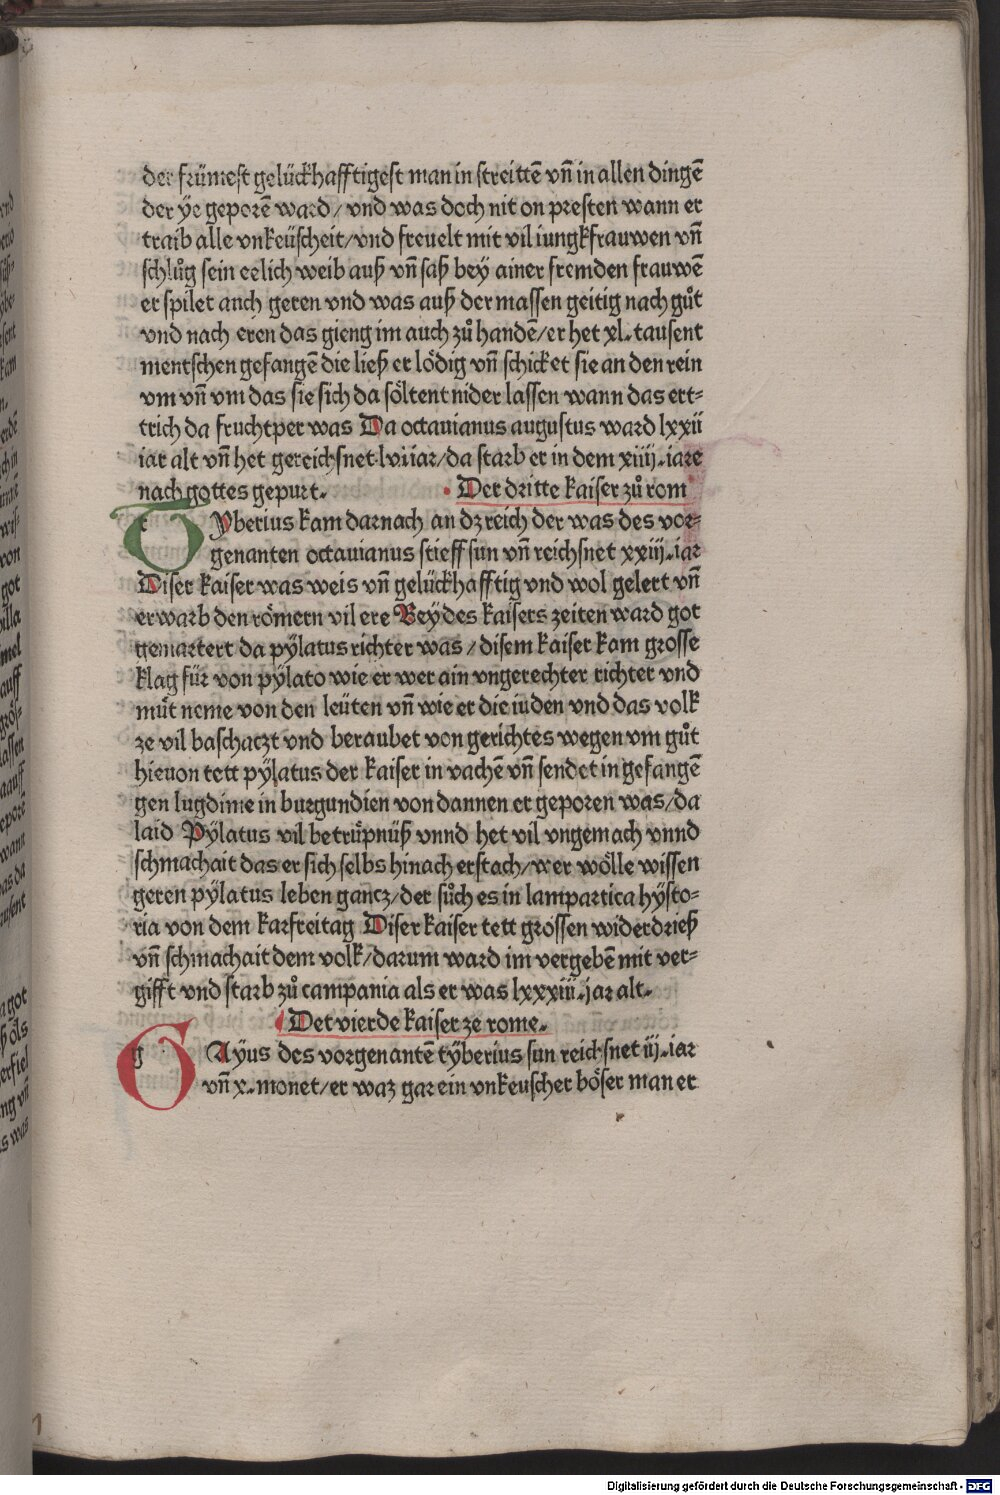 der frümest gelückhafftigest man in streittē vn̄ in allen dingē
der ye geporē ward / vnd was doch nit on presten wann er
traib alle vnkeüscheit/vnd freuelt mit vil iungkfrauwen vn̄
schlůg sein eelich weib auß vn̄ saß bey ainer fremden frauwē
er spilet auch geren vnd was auß der massen geitig nach gůt
vnd nach eren das gieng im auch zů handē/er het xl. tausent
mentschen gefangē die ließ er lödig vn̄ schicket sie an den rein
vm vn̄ vm das sie sich da söltent nider lassen wann das ert-
trich da fruchtper was Da octauianus augustus ward lxxii
iar alt vn̄ het gereichsnet lvi iar/da starb er in dem xiiij. iare
nach gottes gepurt. Der dritte kaiser zů rom
TYberius kam darnach an dz reich der was des vor-
genanten octauianus stieff sun vn̄ reichsnet xxiij. iar
Diser kaiser was weis vn̄ gelückhafftig vnd wol gelert vn̄
erwarb den römern vil ere Bey des kaisers zeiten ward got
gemartert da pÿlatus richter was / disem kaiser kam grosse
klag für von pÿlato wie er wer ain vngerechter richter vnd
můt neme von den leüten vn̄ wie er die iuden vnd das volk
ze vil baschaczt vnd beraubet von gerichtes wegen vm gůt
hieuon tett pÿlatus der kaiser in vachē vn̄ sendet in gefangē
gen lugdime in burgundien von dannen er geporen was/da
laid Pÿlatus vil betrůpnüß vnnd het vil vngemach vnnd
schmachait das er sich selbs hinach erstach/wer wölle wissen
geren pÿlatus leben gancz/der sůch es in lampartica hÿsto-
ria von dem karfreitag Diser kaiser tett grossen widerdrieß
vn̄ schmachait dem volk/darum ward im vergebē mit ver-
gifft vnd starb zů campania als er was lxxxiii. jar alt.
Der vierde kaiser ze rome.
GAÿus des vorgenantē tÿberius sun reichsnet iij. iar
vn̄ x. monet/er waz gar ein vnkeuscher böser man er
Digitalisierung gefördert durch die Deutsche Forschungsgemeinschaft - DFG